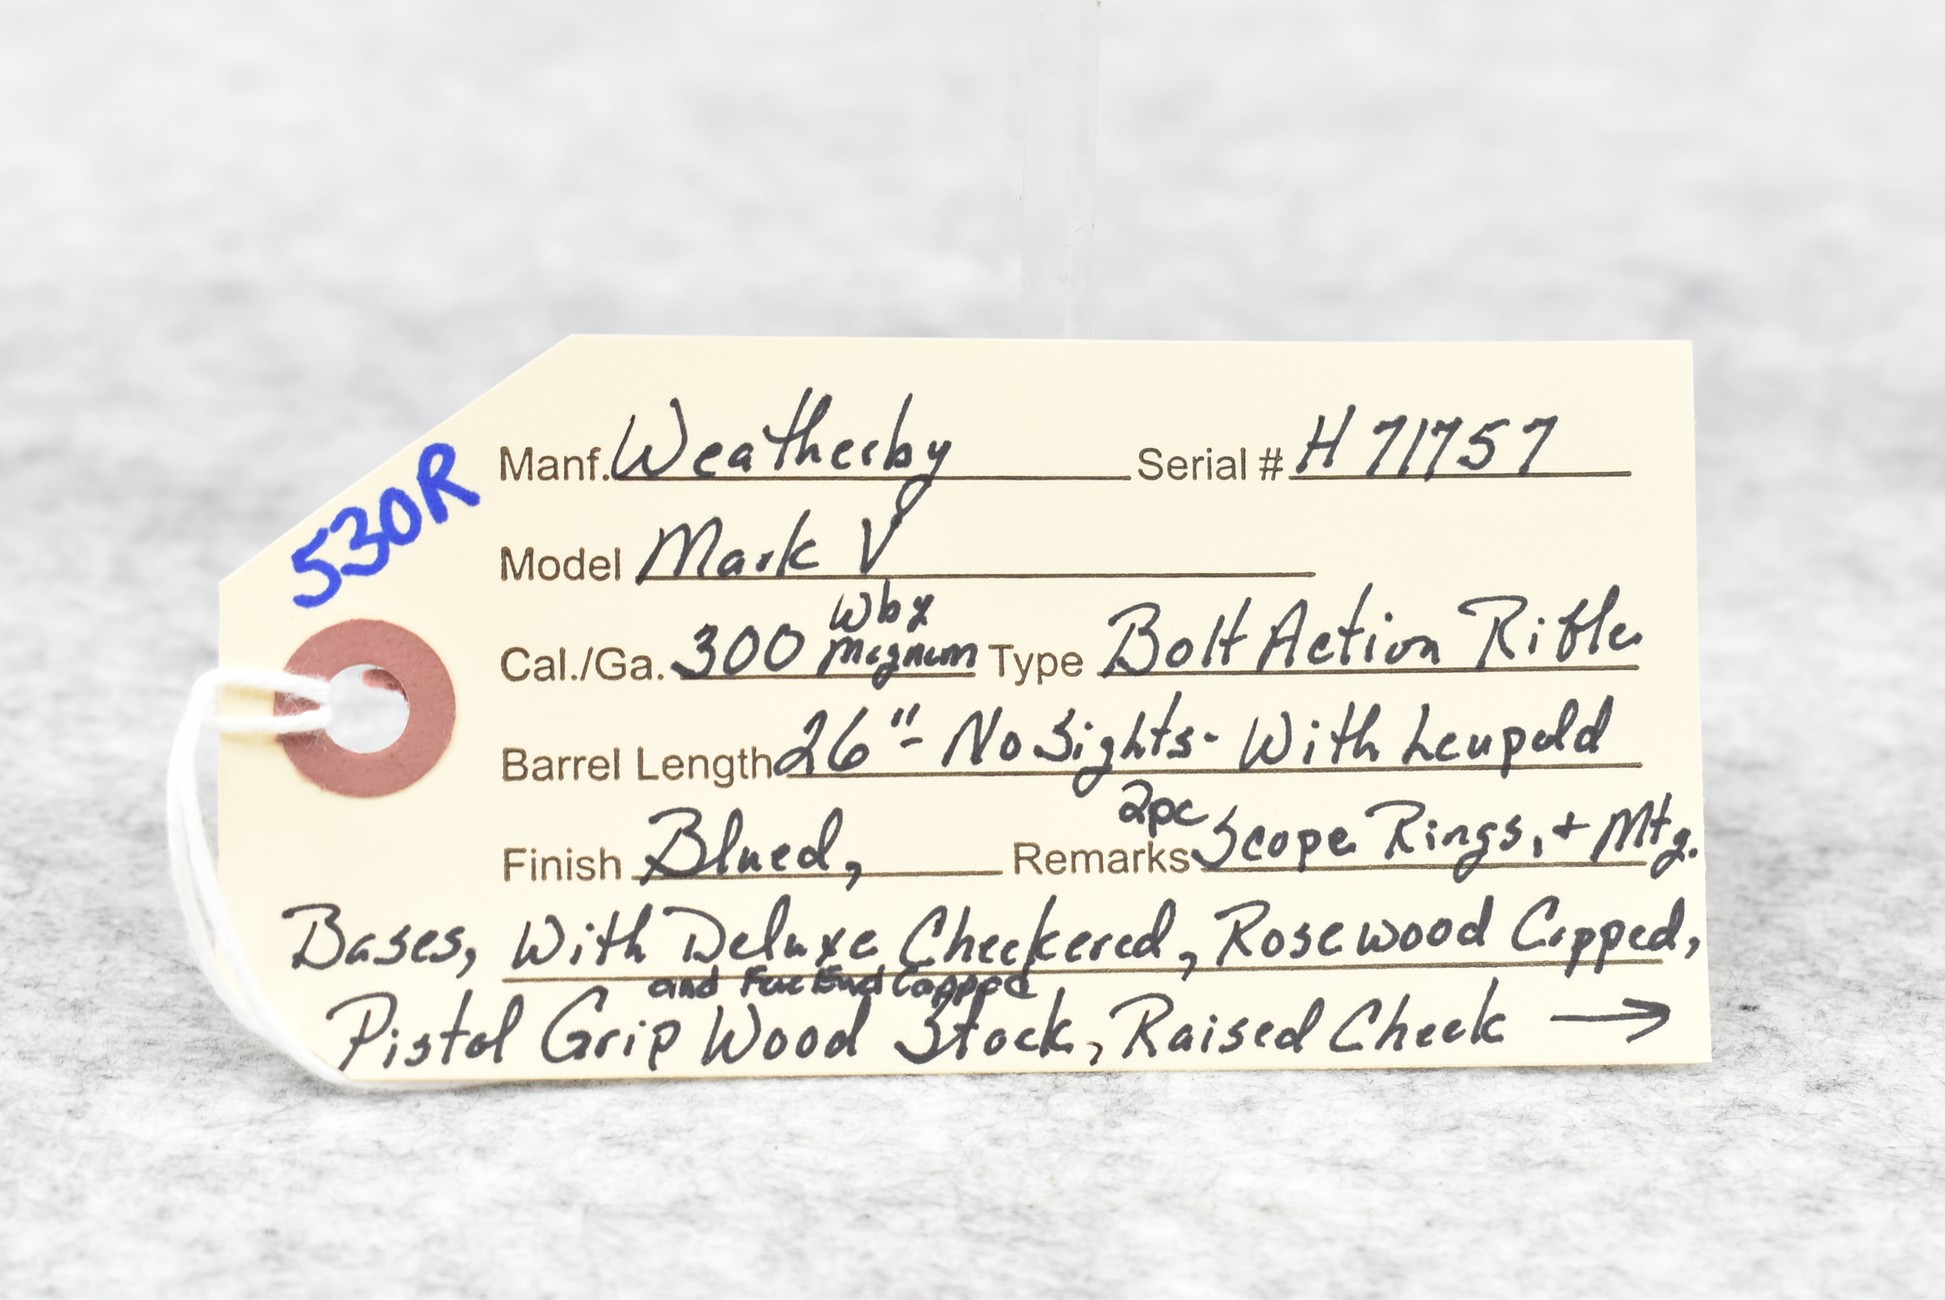 530R
Manf. Weatherby Serial # H71757
Model Mark V
Wby
Cal./Ga. 300 Magnum Type Bolt Action Rifle
Barrel Length 26" - No Sights - With Leupold
2pc
Finish Blued, Remarks Scope Rings, + Mtg.
Bases, With Deluxe Checkered, Rosewood Capped,
and Fore End Capped
Pistol Grip Wood Stock, Raised Cheek →